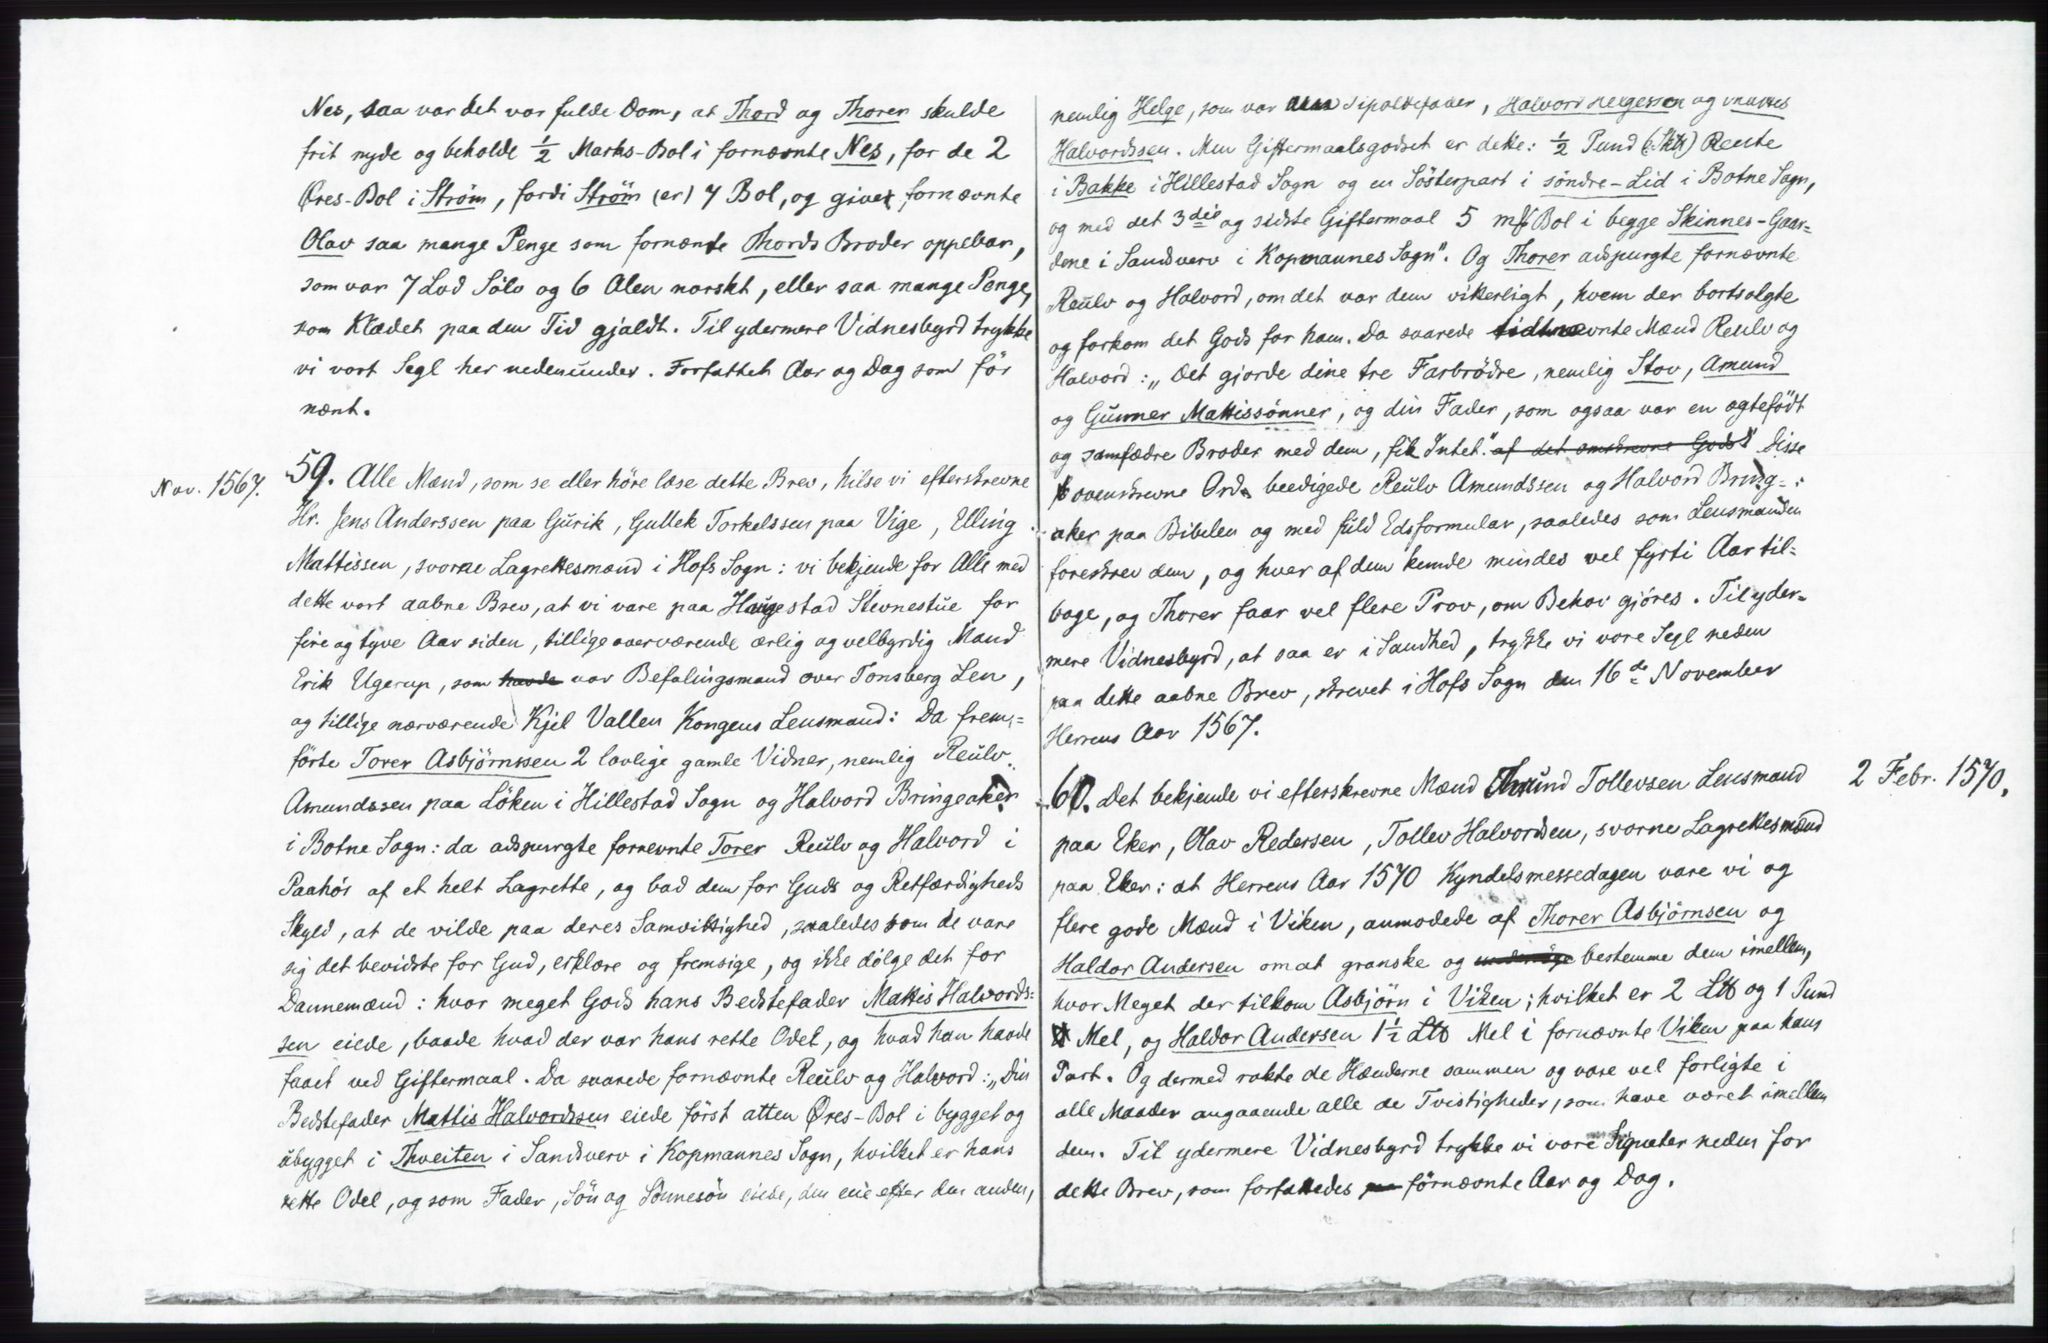 Nes, saa var det vor fulde Dom, at Thord og Thorer skulde
frit nyde og beholde ½ Marks-Bol i fornævnte Nes, for de 2
Øres-Bol i Ström, fordi Ström (er) 7 Bol, og give fornævnte
Olav saa mange Penge som fornænte Thords Broder oppebar,
som var 7 Lod Sölv og 6 Alen norskt, eller saa mange Penge,
som Klædet paa den Tid gjaldt. Til ydermere Vidnesbyrd trykke
vi vort Segl her nedenunder. Forfattet Aar og Dag som för
nænt.
Nov. 1567.
59. Alle Mænd, som se eller höre læse dette Brev, hilse vi efterskrevne
Hr. Jens Anderssen paa Gurik, Gullek Torkelssen paa Vige, Elling
Mattissen, svorne Lagrettesmænd i Hofs Sogn: vi bekjende for Alle med
dette vort aabne Brev, at vi vare paa Haugestad Stevnestue for
fire og tyve Aar siden, tillige overværende ærlig og velbyrdig Mand
Erik Ugerup, som havde var Befalingsmand over Tonsberg Len,
og tillige nærværende Kjel Vallen Kongens Lensmand: Da frem-
förte Torer Asbjörnssen 2 lovlige gamle Vidner, nemlig Reulv
Amundssen paa Löken i Hillestad Sogn og Halvord Bringeaker
i Botne Sogn: da adspurgte fornevnte Torer Reulv og Halvord i
Paahör af et helt Lagrette, og bad dem for Guds og Retfærdigheds
Skyld, at de vilde paa deres Samvittighed, saaledes som de vare
sig det bevidste for Gud, erklære og fremsige, og ikke dölge det for
Dannemænd: hvor meget Gods hans Bedstefader Mattis Halvords-
sen eiede, baade hvad der var hans rette Odel, og hvad han havde
faaet ved Giftermaal. Da svarede fornævnte Reulv og Halvord: „Din
Bedstefader Mattis Halvordssen eiede först atten Øres-Bol i bygget og
ubygget i Thveiten i Sandsverv i Kopmannes Sogn, hvilket er hans
rette Odel, og som Fader, Sön og Sönnesön eiede, den ene efter den anden,
nemlig Helge, som var Tipoldefader, Halvord Helgessen og Mattis
Halvordssen. Men Giftermaalsgodset er dette: ½ Pund Rente
i Bakke i Hillestad Sogn og en Sösterpart i söndre-Lid i Botne Sogn,
og med det 3die og sidste Giftermaal 5 Bol i begge Skinnes-Gaar-
dene i Sandsverv i Kopmannes Sogn". Og Thorer adspurgte fornævnte
Reulv og Halvord, om det var dem vitterligt, hvem der bortsolgte
og forkom det Gods for ham. Da svarede tidtnævnte Mænd Reulv og
Halvord: „Det gjorde dine tre Farbrödre, nemlig Stov, Amund
og Gunner Mattissönner, og din Fader, som ogsaa var en ægtefödt
og samfædre Broder med dem, fik Intet." af det omskrevne Gods" Disse
ovenskrevne Ord beedigede Reulv Amundssen og Halvord Bring-
aker paa Bibelen og med fuld Edsformular, saaledes som Lensmanden
foreskrev dem, og hver af dem kunde mindes vel fyrti Aar til-
bage, og Thorer faar vel flere Prov, om Behov gjöres. Til yder-
mere Vidnesbyrd, at saa er i Sandhed, trykke vi vore Segl neden
paa dette aabne Brev, skrevet i Hofs Sogn den 16de November
Herrens Aar 1567.
2 Febr. 1570.
60. Det bekjende vi efterskrevne Mænd Thrund Tollevsen Lensmand
paa Eker, Olav Redersen, Tollev Halvordsen, svorne Lagrettesmænd
paa Eker: at Herrens Aar 1570 Kyndelsmessedagen vare vi og
flere gode Mænd i Viken, anmodede af Thorer Asbjörnsen og
Haldor Andersen om at granske og bestemme dem imellem,
hvor Meget der tilkom Asbjörn i Viken; hvilket er 2 L℔ og 1 Pund
Mel, og Haldor Andersen 1½ L℔ Mel i fornævnte Viken paa hans
Part. Og dermed rakte de Hænderne sammen og vare vel forligte i
alle Maader angaaende alle de Tvistigheder, som have været imellem
dem. Til ydermere Vidnesbyrd trykke vi vore Signeter neden for
dette Brev, som forfattedes förnævnte Aar og Dag.